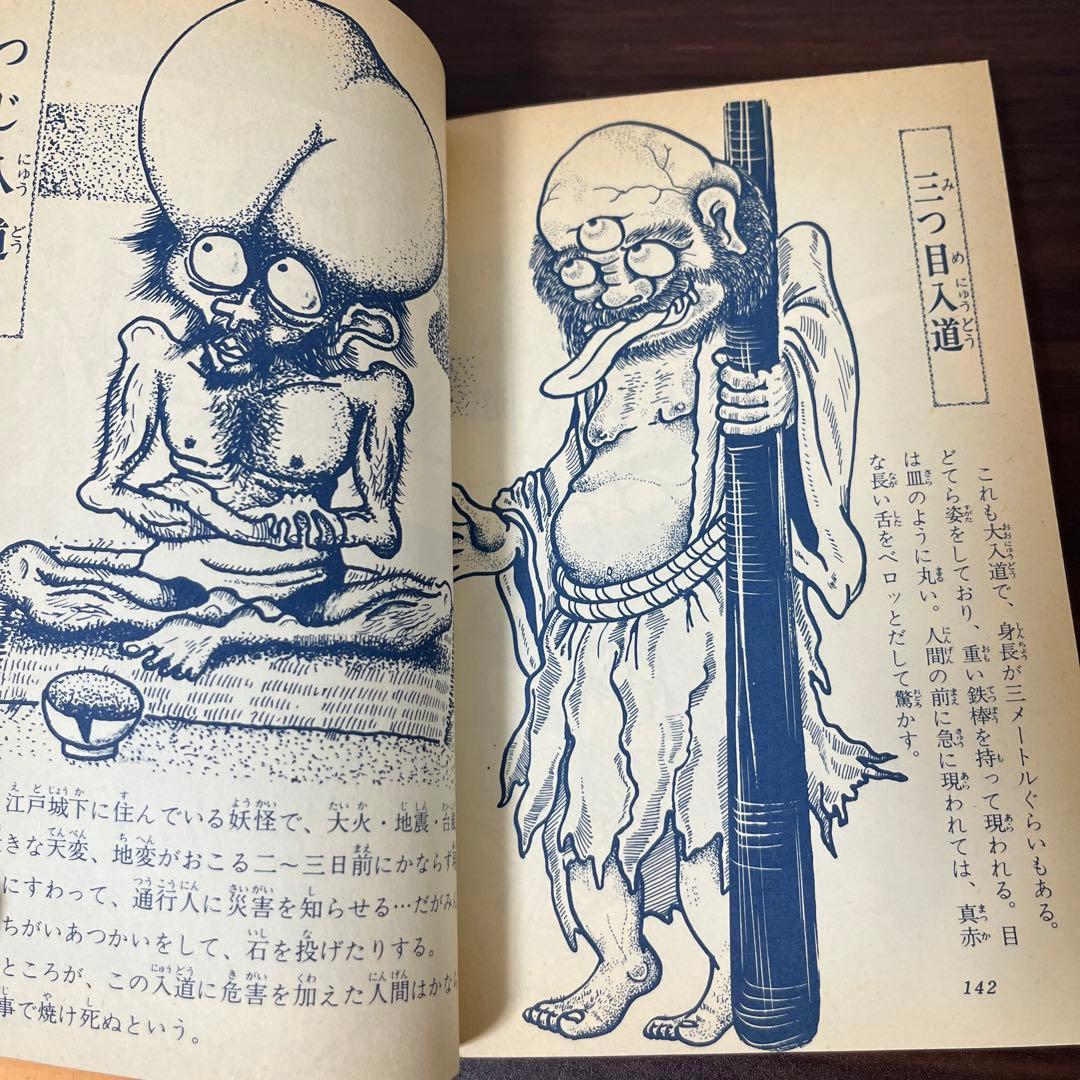 三つ目入道
これも大入道で、身長が三メートルぐらいもある。
どてら姿をしており、重い鉄棒を持って現われる。目
は皿のように丸い。人間の前に急に現われては、真赤
な長い舌をベロッとだして驚かす。
142
つじ入道
江戸城下に住んでいる妖怪で、大火・地震・台風
きな天変、地変がおこる二〜三日前にかならず
にすわって、通行人に災害を知らせる…だがみん
ちがいあつかいをして、石を投げたりする。
ところが、この入道に危害を加えた人間はかなら
事で焼け死ぬという。